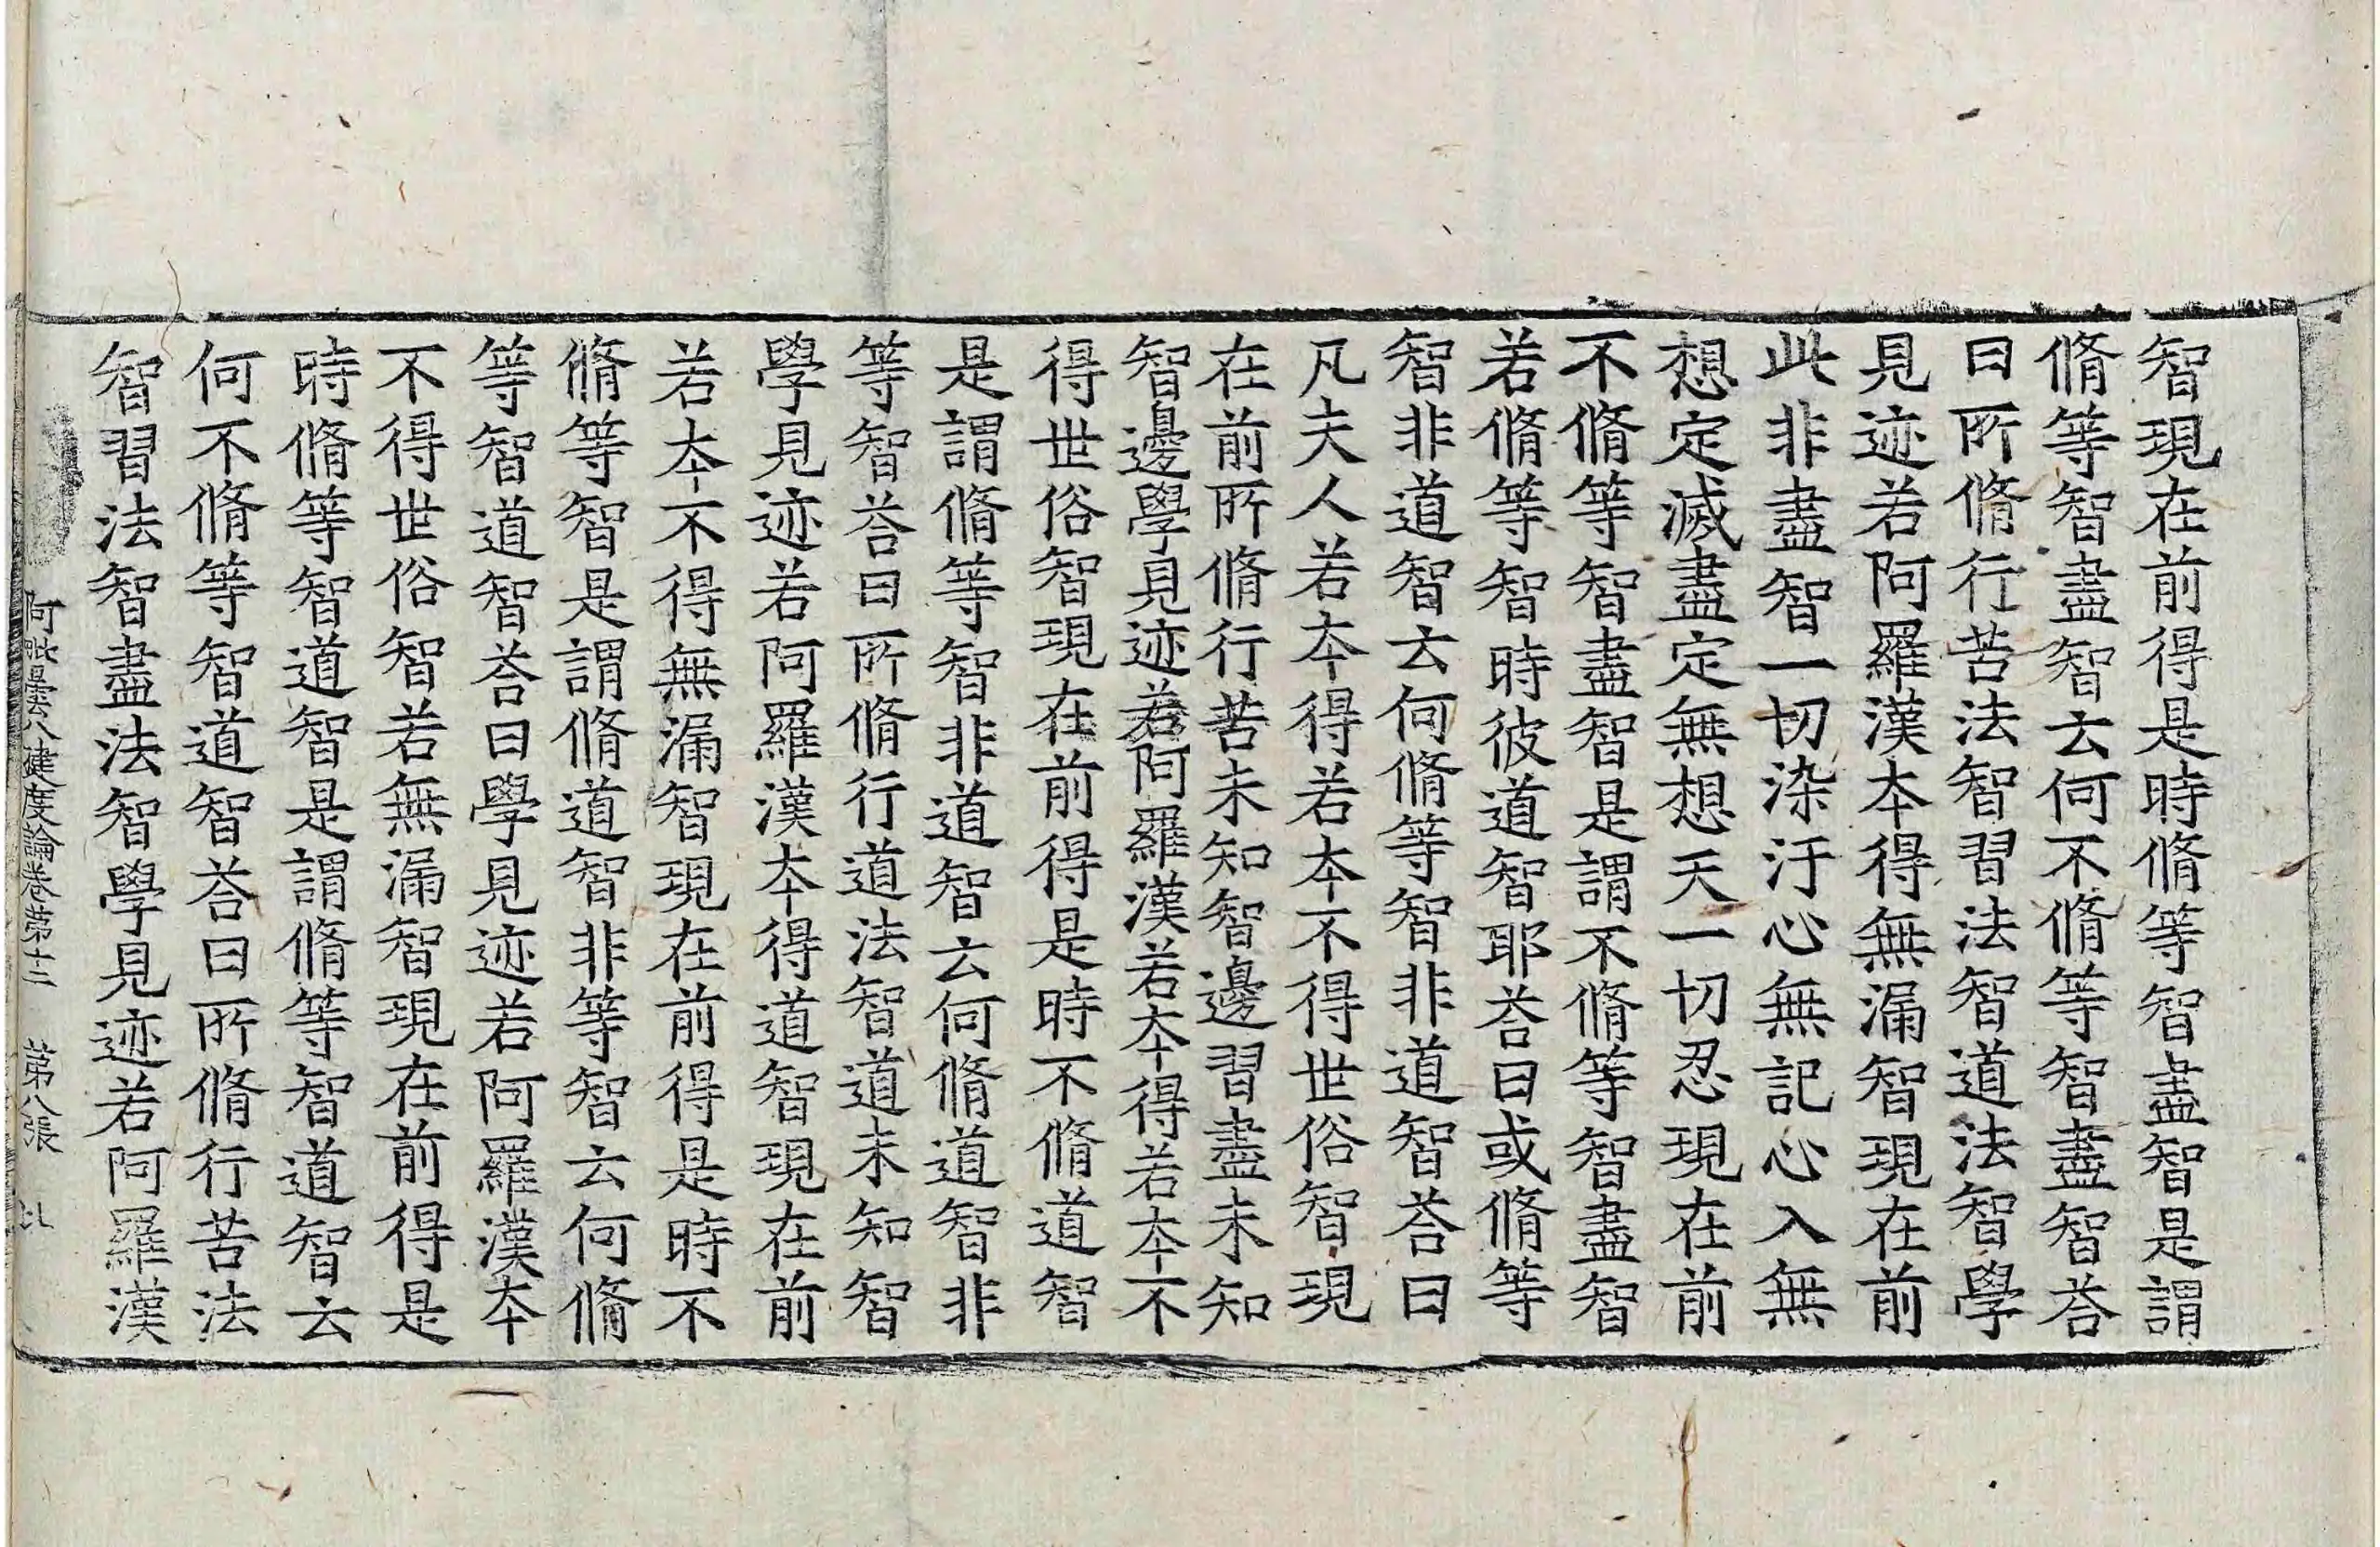 智現在前得是時脩等智盡智是謂
脩等智盡智云何不脩等智盡智荅
曰所脩行苦法智習法智道法智學
見迹若阿羅漢本得無漏智現在前
此非盡智一切染汙心無記心入無
想定滅盡定無想天一切忍現在前
不脩等智盡智是謂不脩等智盡智
若脩等智時彼道智耶荅曰或脩等
智非道智云何脩等智非道智荅曰
凡夫人若本得若本不得世俗智現
在前所脩行苦未知智邊習盡未知
智邊學見迹若阿羅漢若本得若本不
得世俗智現在前得是時不脩道智
是謂脩等智非道智云何脩道智非
等智荅曰所脩行道法智道未知智
學見迹若阿羅漢本得道智現在前
若本不得無漏智現在前得是時不
脩等智是謂脩道智非等智云何脩
等智道智荅曰學見迹若阿羅漢本
不得世俗智若無漏智現在前得是
時脩等智道智是謂脩等智道智云
何不脩等智道智荅曰所脩行苦法
智習法智盡法智學見迹若阿羅漢
阿毗曇八揵度論卷第十二 第八張 以